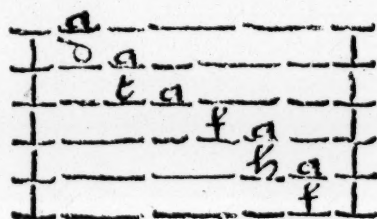 a
d a
t a
f a
h a
f